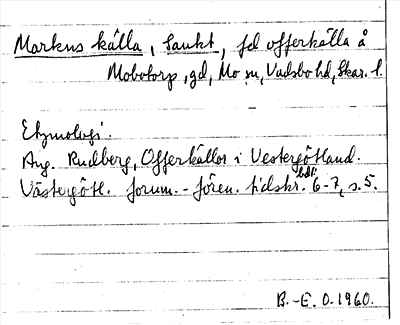 Markus källa, Sankt, fd offerkälla å
Mobotorp, gd, Mo sn, Vadsbo hd, Skar. l.
Etymologi.
Aug. Rudberg, Offerkällor i Vestergötland.
Västergötl. fornm.-fören. tidskr. bd 1: 6-7, s. 5.
B.-E. O. 1960.